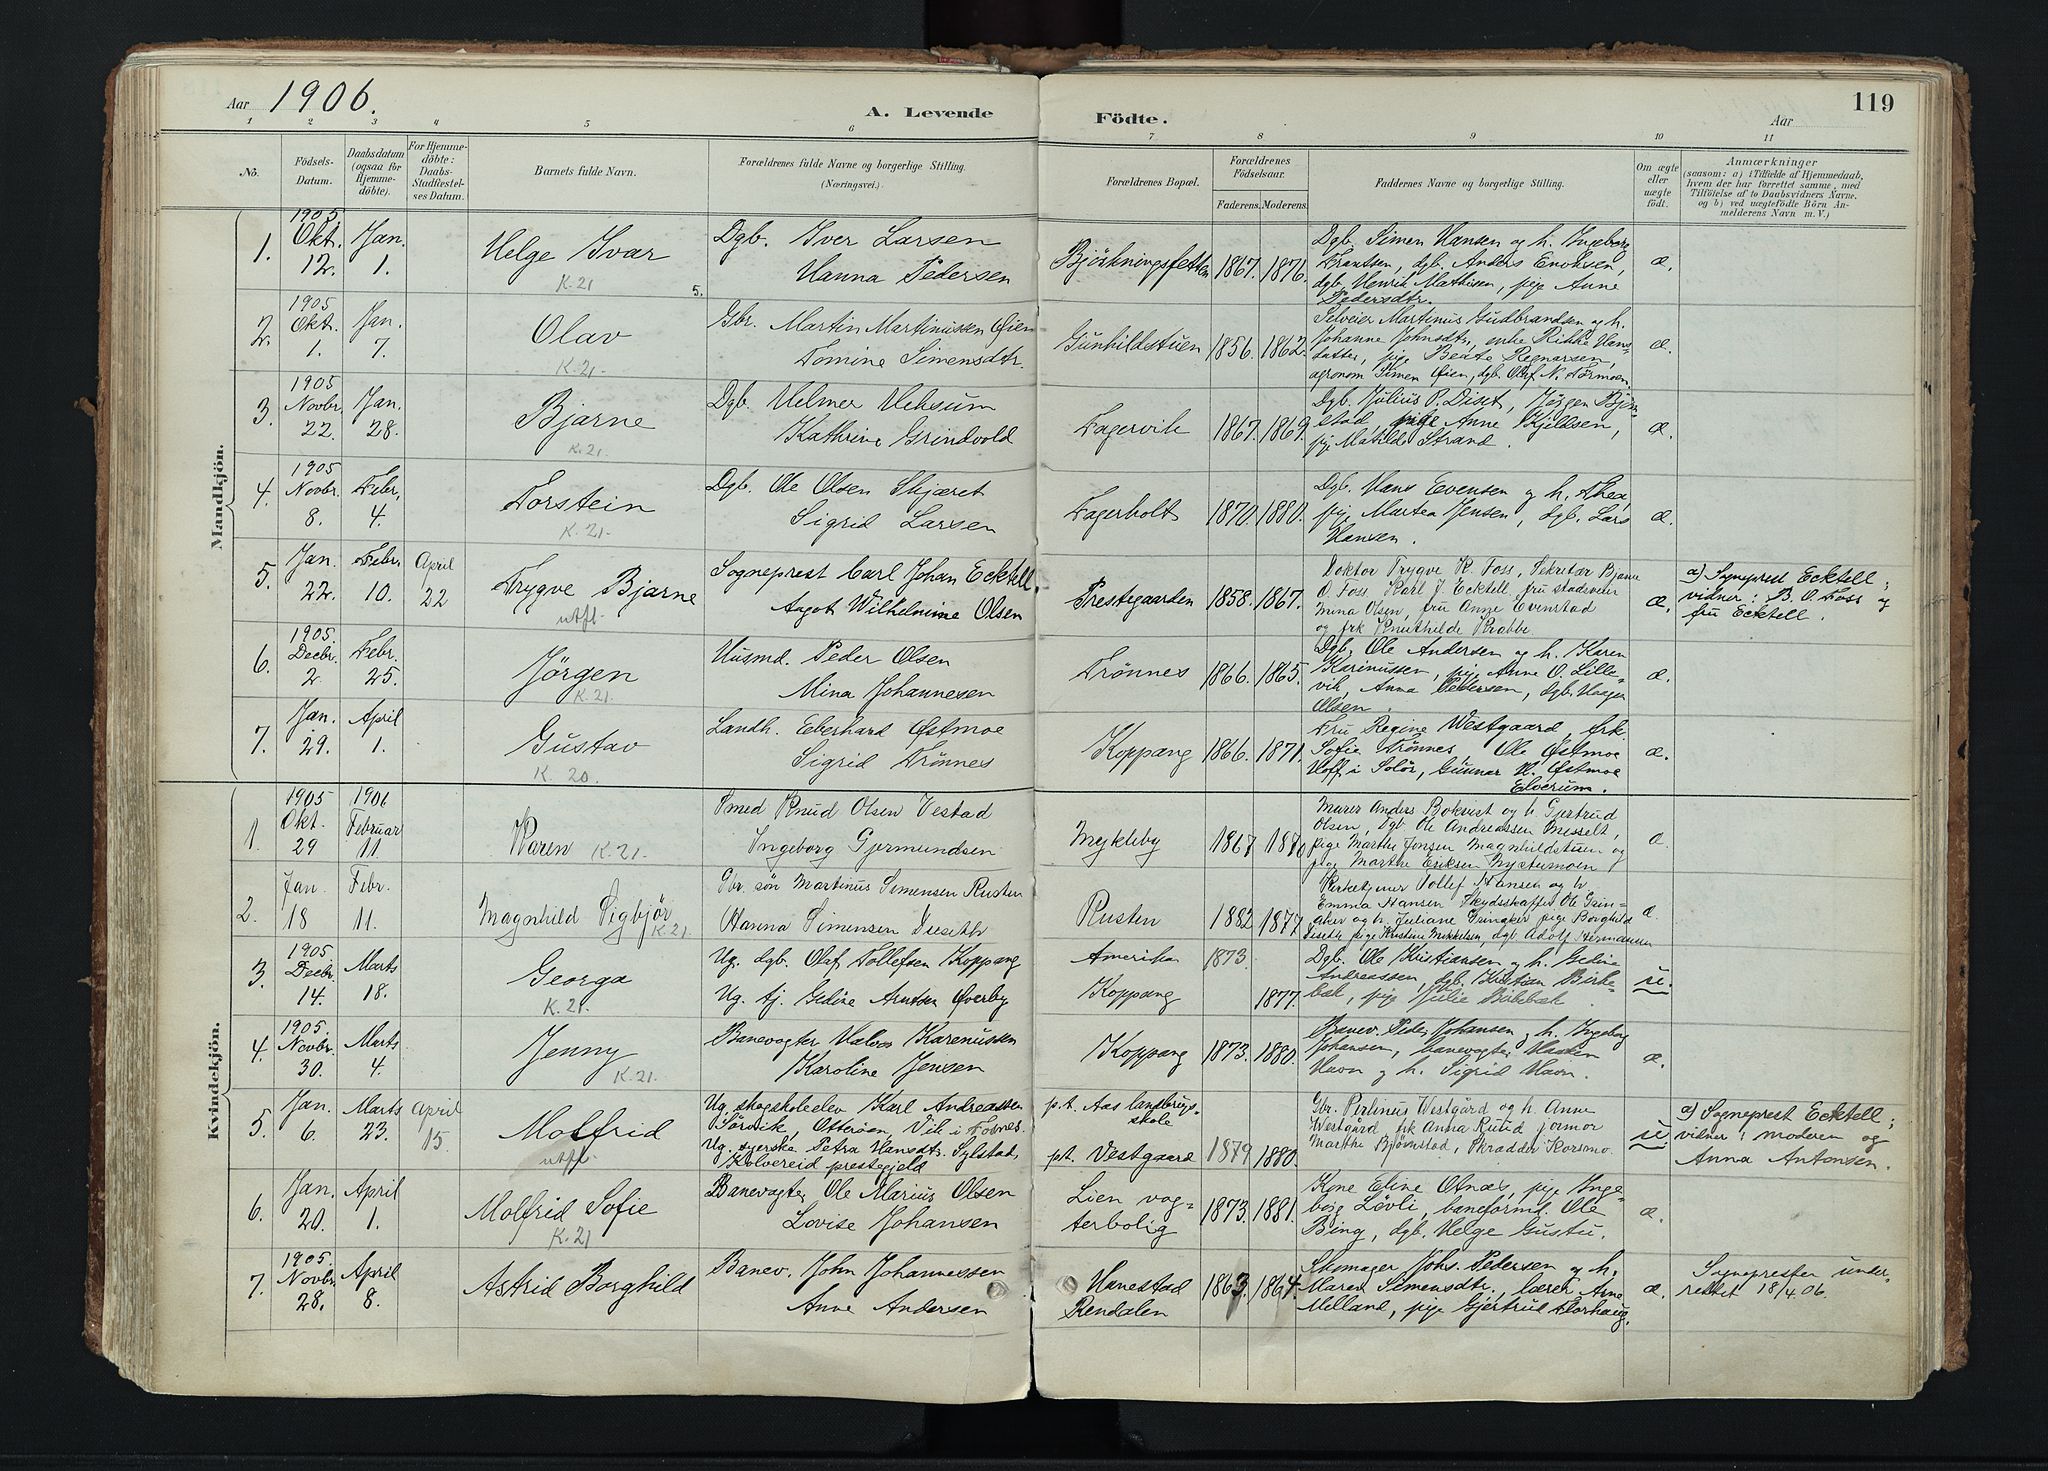 Aar 1906.
A. Levende Födte.
119
Aar
1 2 3 4 5 6 7 8 9 10 11
No.
Födsels-Datum.
Daabsdatum (ogsaa for Hjemme-døbte).
For Hjemme-döbte: Daabs-Stadfæstel-ses Datum.
Barnets fulde Navn.
Forældrenes fulde Navne og borgerlige Stilling.
(Næringsvei.)
Forældrenes Bopæl.
Forældrenes Födselsaar.
Faderens. Moderens.
Faddernes Navne og borgerlige Stilling.
Om ægte eller uægte födt.
Anmærkninger
(saasom: a) i Tilfælde af Hjemmedaab, hvem der har forrettet samme, med Tilföielse af to Daabsvidners Navne, og b) ved uægtefödte Börn An-melderens Navn m. V.)
Mandkjön.
1. 1905 Okt. 12. Jan. 1. Helge Ivar K. 21
Dgb. Iver Larsen
Hanna Pedersen
5.
1867. 1876.
Dgb. Simen Hansen og h. Ingeborg
Frantsen, dgb. Anders Enoksen,
dgb. Henrik Mathisen, pige Anne
Pedersdtr.
æ.
2. 1905 Okt. 1. Jan. 7. Olav K. 21.
Gbr. Martin Martinussen Øien
Tomine Simensdtr.
Gunhildstuen 1856. 1862.
Selveier Martinus Gudbrandsen og h.
Johanne Johnsdtr, enke Rikke Hans-
datter, pige Beate Regnarsen,
agronom Simen Øien, dgb. Oluf N. Tørmoen.
æ.
3. 1905 Novbr. 22. Jan. 28. Bjarne K. 21.
Dgb. Helmer Heksum
Kathrine Grindvold
Fagervik 1867. 1869.
Dgb. Julius P. Diset, Jørgen Bjørn-
stad, pige Anne Kjeldsen,
pige Matilde Strand.
æ.
4. 1905 Novbr. 8. Febr. 4. Torstein K. 21.
Dgb. Ole Olsen Skjæret
Sigrid Larsen
Fagerholt 1870. 1880.
Dgb. Hans Evensen og h. Thea,
pige Martea Jensen, dgb. Lars
Hansen.
æ.
5. Jan. 22. Febr. 10. April 22 Trygve Bjarne utfl.
Sogneprest Carl Johan Ecktell,
Aagot Wilhelmine Olsen
Prestegaarden 1858. 1867.
Doktor Trygve K. Foss, Sekretær Bjarne
O. Foss, Karl J. Ecktell, fru stadsveier
Mina Olsen, fru Anne Evenstad
og frk Knuthilde Krabbe
æ.
a) Sogneprest Ecktell;
vidner: B. O. Foss og
fru Ecktell.
6. 1905. Decbr. 2. Febr. 25. Jørgen K. 21.
Husmd. Peder Olsen
Mina Johannesen
Trønnes 1866. 1865.
Dgb. Ole Andersen og h. Karen
Karinussen, pige Anne O. Lille-
vik, Anna Pedersen, dgb. Haagen
Olsen.
æ.
7. Jan. 29. April 1. Gustav K. 20.
Landh. Eberhard Østmoe
Sigrid Trønnes
Koppang 1866. 1871.
Fru Regine Westgaard, frk.
Sofie Trønnes, Ole Østmoe
Hoff i Solör, Gunnar H. Østmoe
Elverum.
æ.
Kvindekjön.
1. 1905 Okt. 29 1906 Februar 11. Karen K. 21.
Smed Knud Olsen Vestad
Ingeborg Gjermundsen
Mykleby 1867 1870
Murer Anders Bokvist og h Gjertrud
Olsen, Dgb Ole Andreassen Misselt,
pige Marthe Jonsen Magnhildstuen og
pige Marthe Eriksen Myttumoen
æ.
2. Jan. 18 Febr. 11. Magnhild Sigbjør K 21.
Gbr. søn Martinus Simensen Rusten
Hanna Simensen Diseth
Rusten 1882 1877
Kirketjener Tollef Hansen og h
Emma Hansen Skydsskaffer Ole Grin-
aker og h. Juliane Grinaker pige Borghild
Diseth pige Kristine Mikkelsen, dgb Adolf Hermansen
æ.
3. 1905. Decbr. 14. Marts 18. Georga K. 21.
Ug. dgb. Olaf Tollefsen Koppang
Ug. tj. Gedine Arntsen Øverby
Amerika 1873.
Koppang 1877.
Dgb. Ole Kristiansen og h. Gedine
Andreassen, dgb. Kristian Birke-
bæk, pige Julie Birkebæk.
u.
4. 1905. Novbr. 30. Marts 4. Jenny K. 21.
Banevogter Halvor Karenussen
Karoline Jensen
Koppang 1873. 1880.
Banev. Peder Johansen og h. Ingeborg
Johansen, banevogter Haaken
Havn og h. Sigrid Havn.
æ.
5. Jan. 6. Marts 23. April 15 Molfrid utfl.
Ug. skogskoleelev Karl Andreassen
Sörvik, Otterøen, Vik i Fosnes.
Ug. syerske Petra Hansdtr. Sylstad,
Kolvereid prestegjeld
p.t. Aas landbrugs-
skole
p.t. Vestgaard 1879 1880.
Gbr. Perlinus Westgård og h. Anne
Westgård, frk Anna Ruud jormor
Marthe Bjørnstad, Skradder Korsmo.
u
a) Sogneprest Ecktell;
vidner: moderen og
Anna Antonsen.
6. Jan. 20. April 1. Molfrid Sofie K. 21
Banevogter Ole Marius Olsen
Lovise Johansen
Lien vog-
terbolig 1873. 1881.
Kone Eline Otnæs, pige Inge-
borg Løvli, baneformd. Ole
Bing, dgb. Helge Gustu.
æ.
7. 1905. Novbr. 28. April 8. Astrid Borghild
Banev. John Johannessen
Anne Andersen
Hanestad
Rendalen 1863. 1864.
Skomager Johs. Pedersen og h.
Maren Simensdtr., lærer Arne
Melland, pige Gjertrud Horhaug.
æ.
Sognepresten under-
rettet 18/4 06.